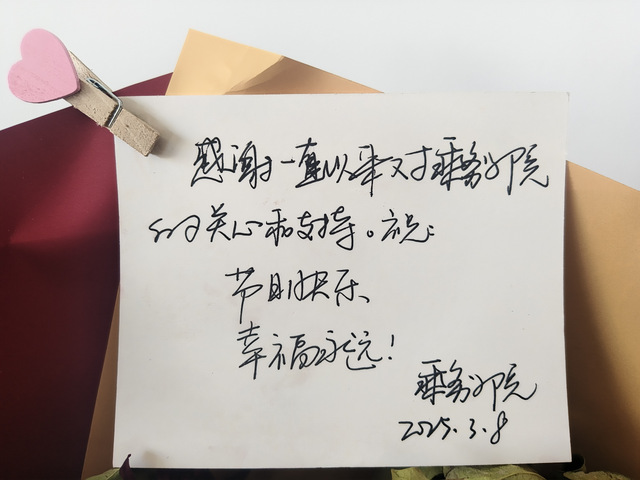 感谢一直以来对乘务学院
的关心和支持。祝:
节日快乐、
幸福永远!
乘务学院
2025.3.8